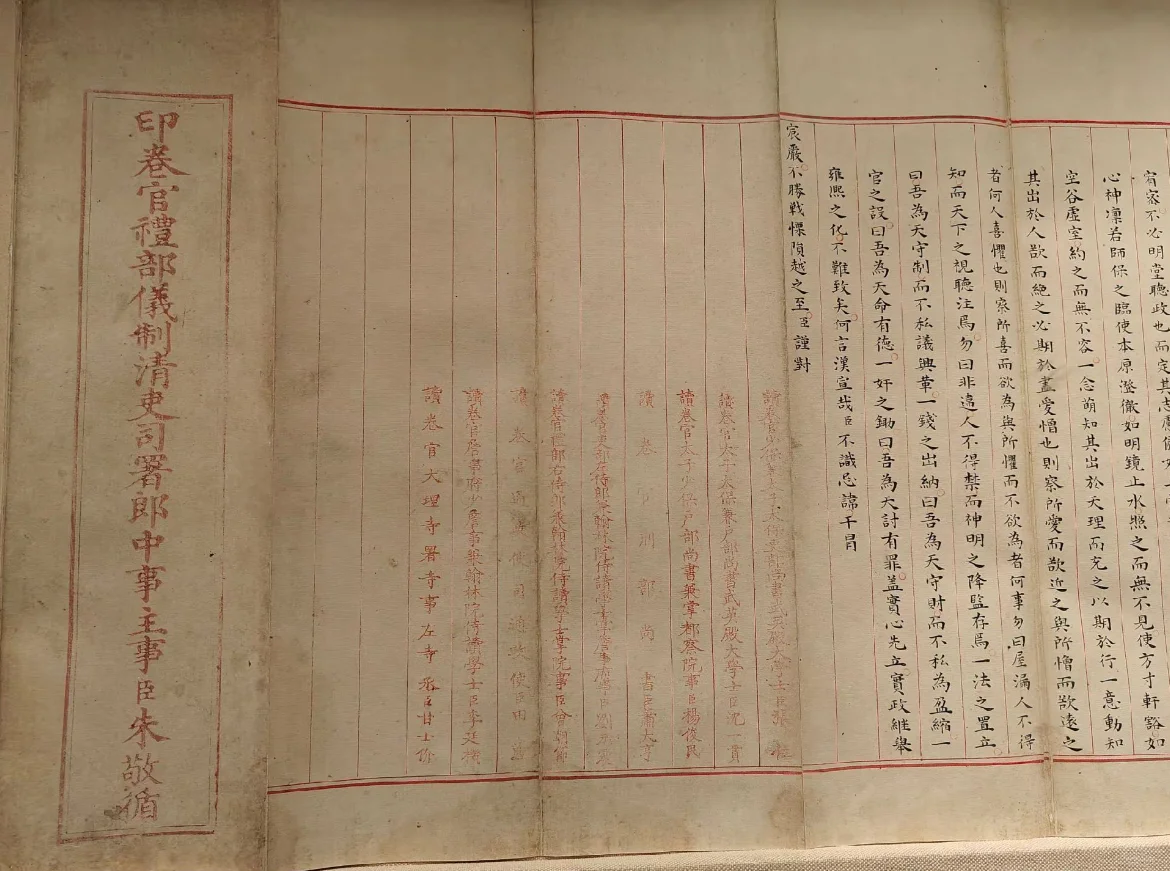 宥密不必明堂聽政也而定其志慮儼如
心神凛若師保之臨使本原澄徹如明鏡止水照之而無不見使方寸軒豁如
空谷虛室約之而無不容一念萌知其出於天理而充之以期於行一意動知
其出於人欲而絶之必期於盡愛憎也則察所愛而欲近之與所憎而欲遠之
者何人喜懼也則察所喜而欲為與所懼而不欲為者何事勿曰屋漏人不得
知而天下之視聽注焉勿曰非違人不得禁而神明之降監存焉一法之置立
曰吾為天守制而不私議興革一錢之出納曰吾為天守財而不私為盈縮一
官之設曰吾為天命有德一奸之鋤曰吾為天討有罪蓋實心先立實政継舉
雍熙之化不難致矣何言漢宣哉臣不識忌諱干冒
宸嚴不勝戰慄隕越之至臣謹對
讀卷官少保兼太子太保吏部尚書武英殿大學士臣張
讀卷官太子太保兼戶部尚書武英殿大學士臣沈一貫
讀卷官太子少保戶部尚書兼掌都察院事臣楊俊民
讀卷官刑部尚書臣蕭大亨
讀卷官吏部左侍郎兼翰林院侍讀學士掌詹事府事臣劉
讀卷官禮部右侍郎兼翰林院侍讀學士掌院事臣曾朝節
讀卷官通政使司通政使臣田
讀卷官詹事府少詹事兼翰林院侍讀學士臣李廷機
讀卷官大理寺署寺事左寺丞臣甘士价
印卷官禮部儀制清吏司署郎中事主事臣朱敬循